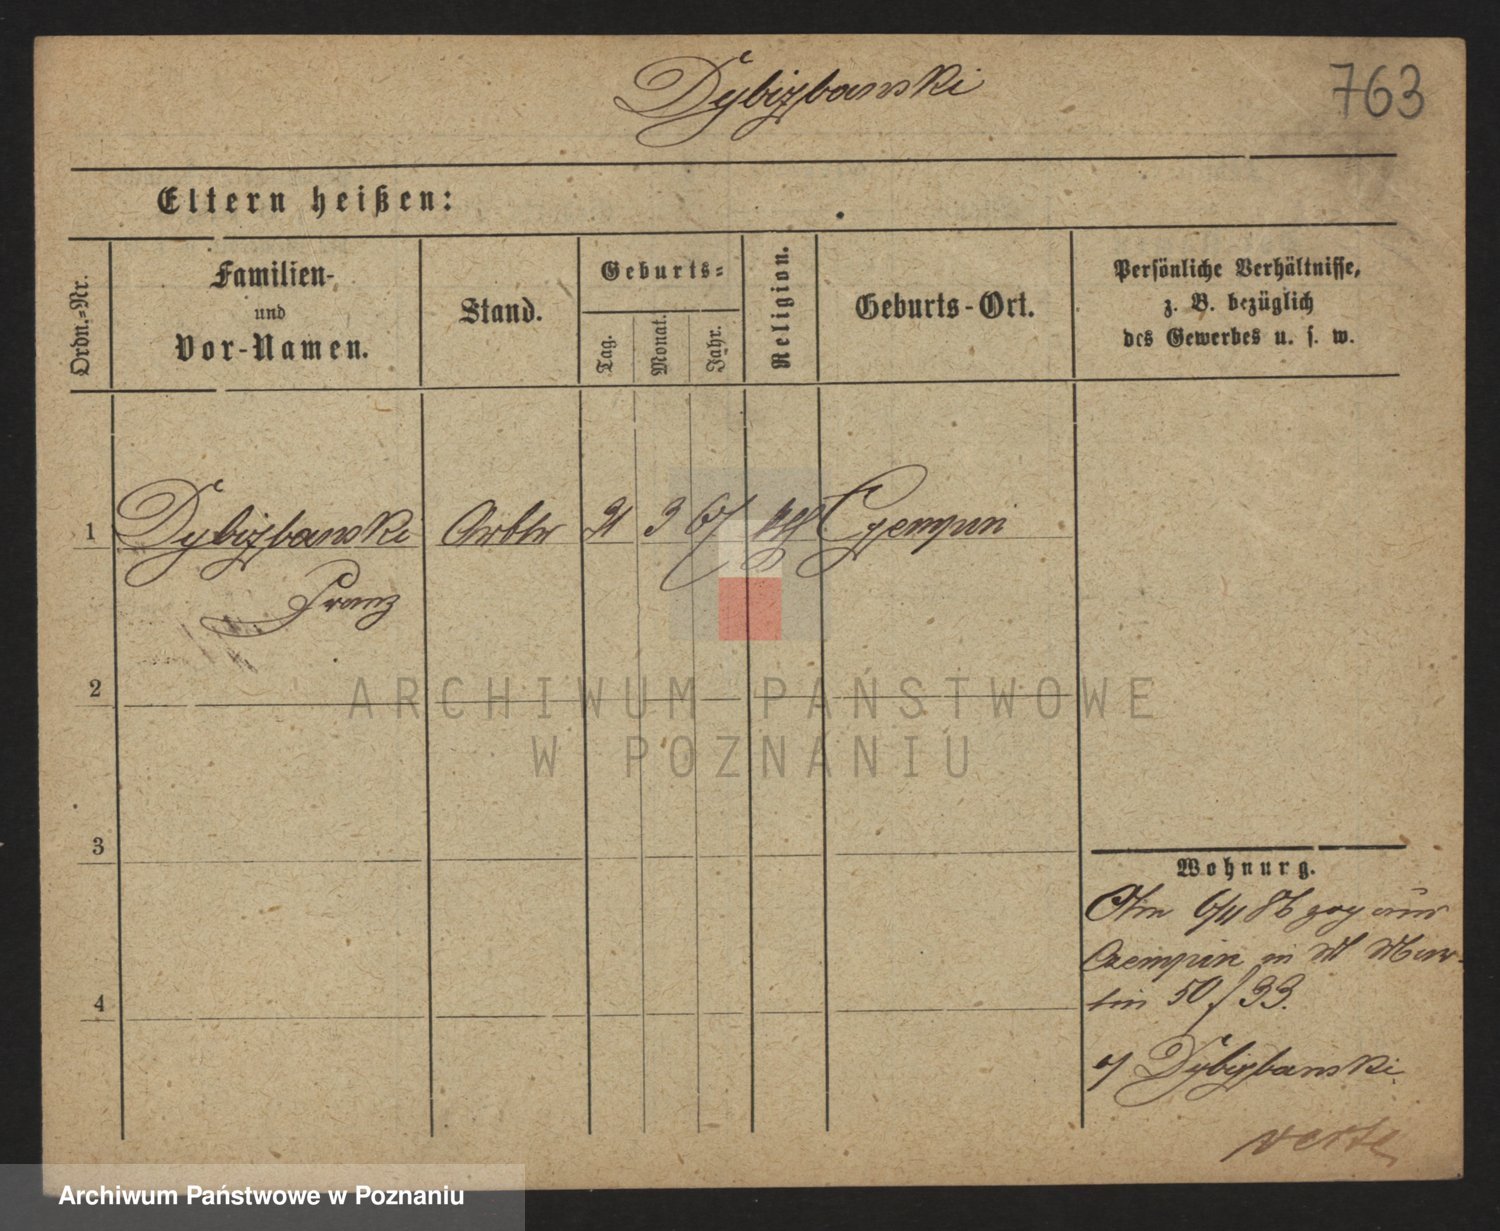 Dybizbanski
763
Eltern heißen:
Ordn.-Nr.
Familien-
und
Vor-Namen.
Stand.
Geburts-
Tag.
Monat.
Jahr.
Religion.
Geburts-Ort.
Persönliche Verhältnisse,
z. B. bezüglich
des Gewerbes u. s. w.
1 Dybizbanski Arbtr 3 67 Czempin
Franz
2
ARCHIWUM PAŃSTWOWE
W POZNANIU
3
4
Wohnurg.
Am 6/11 86 zog aus
Czempin in St Mar-
tin 50 / 33.
Dybizbanski
verte
Archiwum Państwowe w Poznaniu